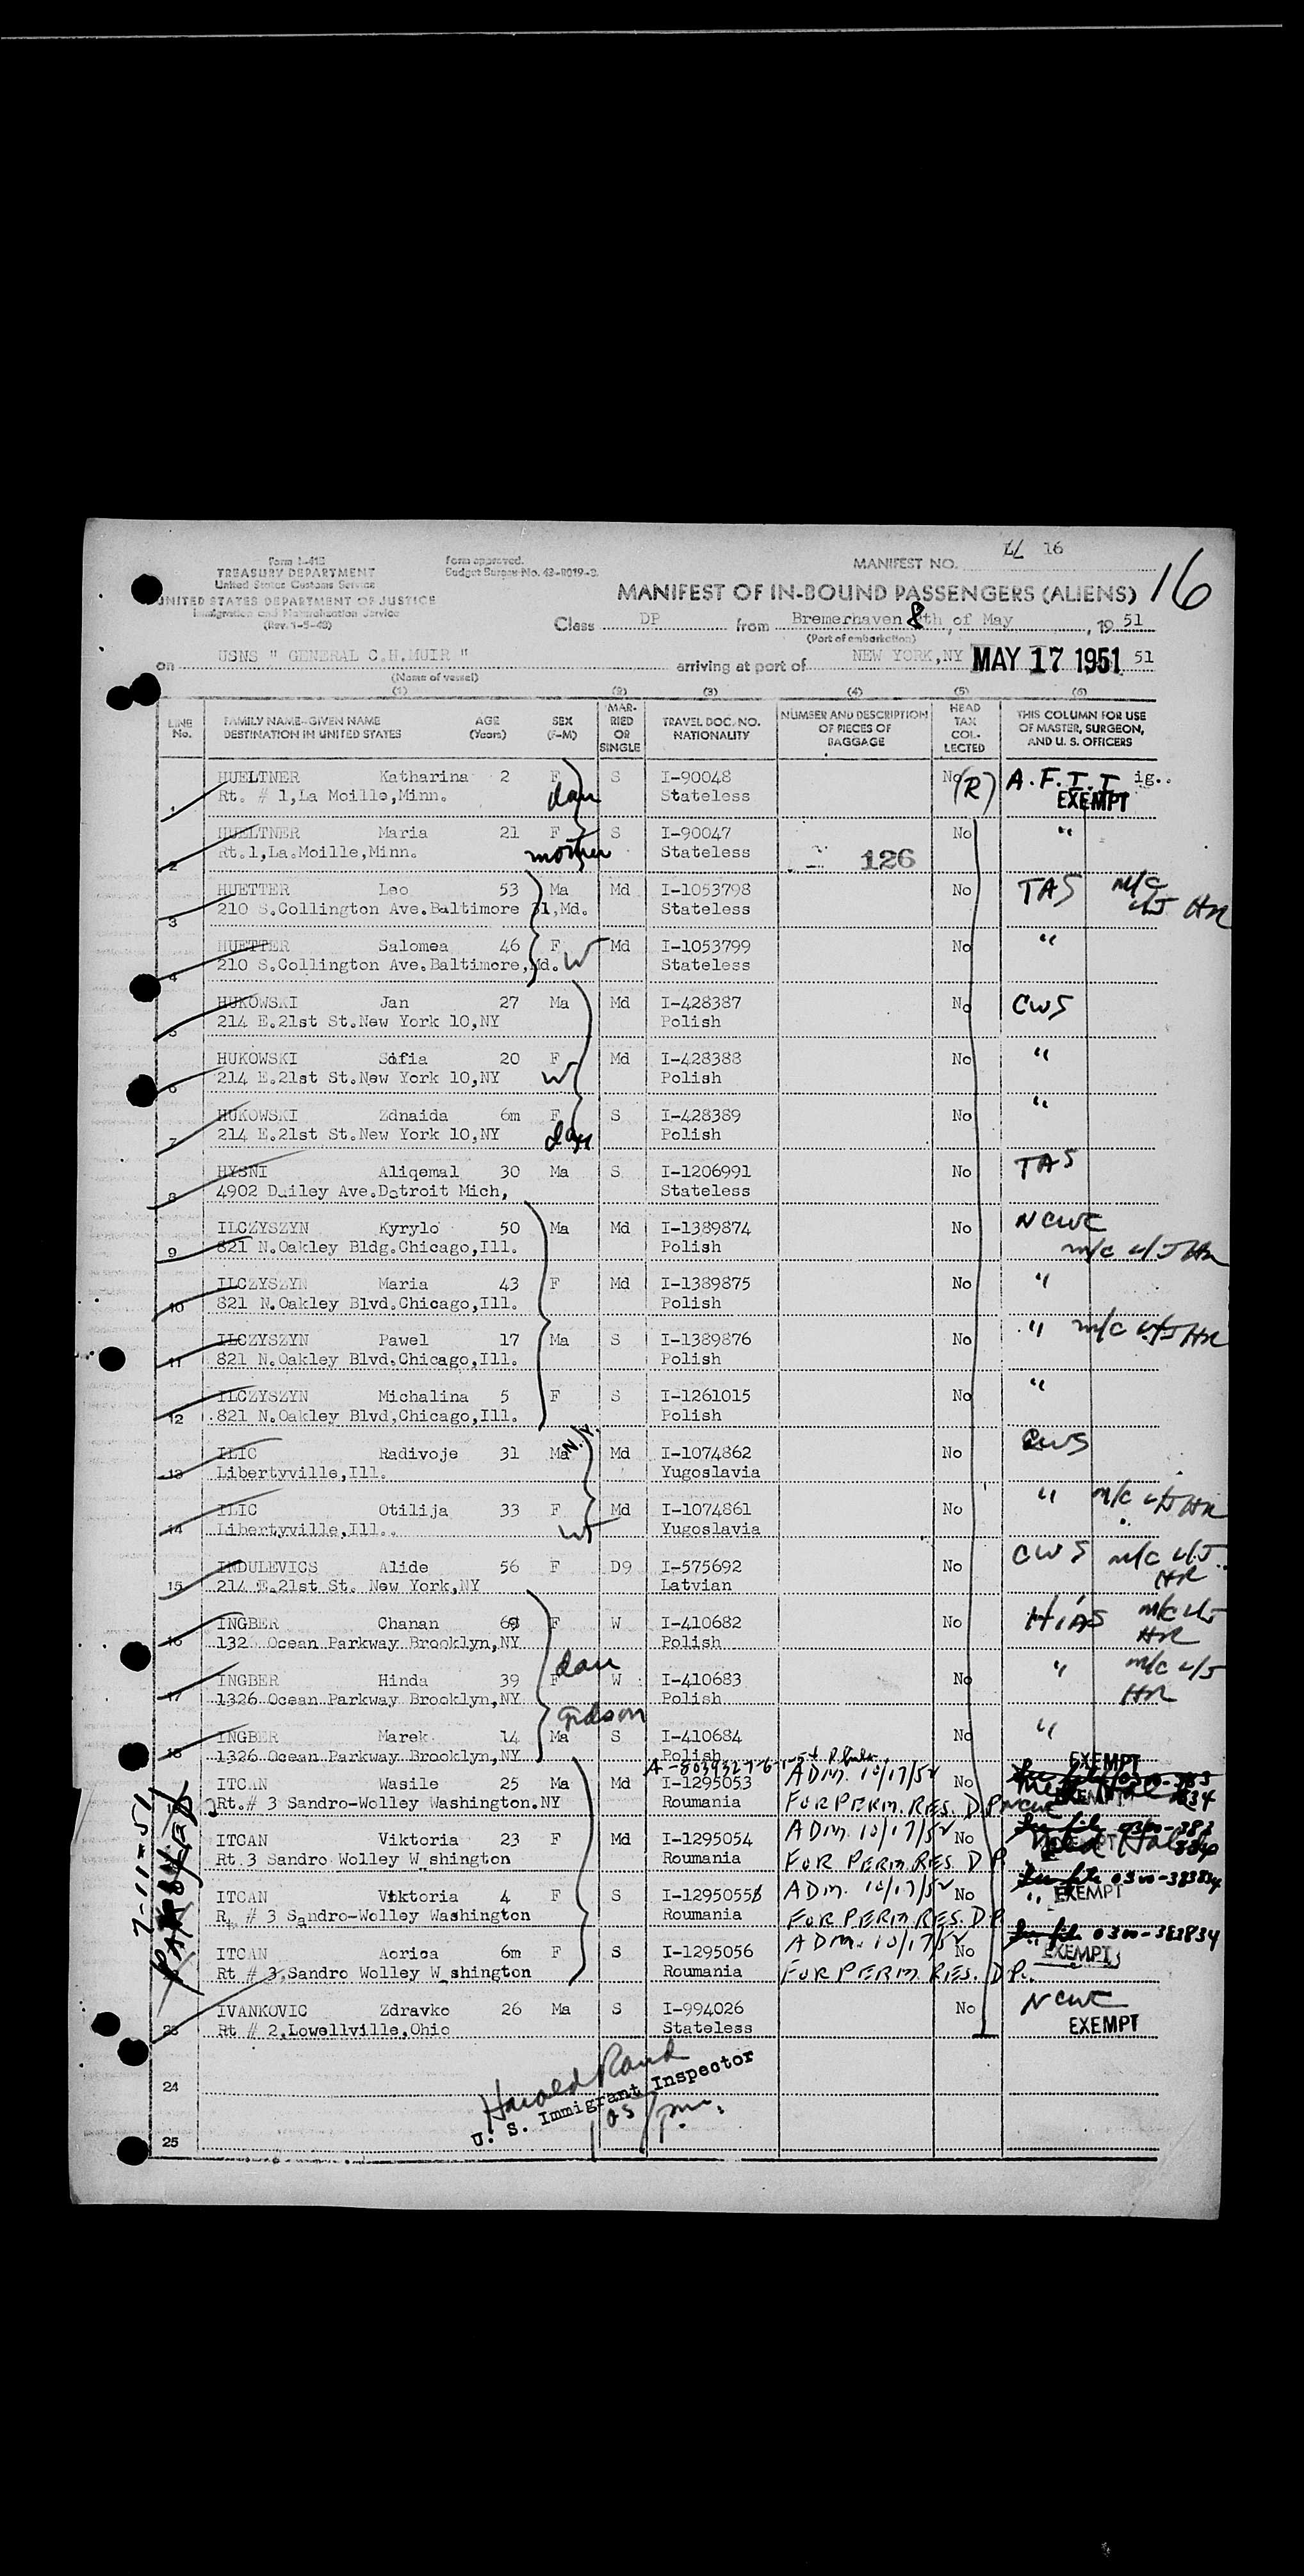 Form I-415
TREASURY DEPARTMENT
United States Customs Service
UNITED STATES DEPARTMENT OF JUSTICE
Immigration and Naturalization Service
(Rev. 1-5-48)
Form approved.
Budget Bureau No. 43-R019-2.
MANIFEST NO. 16
16
MANIFEST OF IN-BOUND PASSENGERS (ALIENS)
Class DP from Bremerhaven 8th of May, 1951
(Port of embarkation)
on USNS " GENERAL C.H.MUIR " arriving at port of NEW YORK,NY MAY 17 1951 51
(Name of vessel)
(1) (2) (3) (4) (5) (6)
LINE No. FAMILY NAME—GIVEN NAME DESTINATION IN UNITED STATES AGE (Years) SEX (F-M) MARRIED OR SINGLE TRAVEL DOC. NO. NATIONALITY NUMBER AND DESCRIPTION OF PIECES OF BAGGAGE HEAD TAX COLLECTED THIS COLUMN FOR USE OF MASTER, SURGEON, AND U. S. OFFICERS
1 HUELTNER Katharina 2 F S I-90048 No (R) A.F.I.I ig..
Rt. # 1,La Moille,Minn. dau Stateless EXEMPT
2 HUELTNER Maria 21 F S I-90047 No "
Rt.1,La.Moille,Minn. mother Stateless 126
3 HUETTER Leo 53 Ma Md I-1053798 No TAS m/c HR
210 S.Collington Ave.Baltimore 31,Md. Stateless
4 HUETTER Salomea 46 F W Md I-1053799 No "
210 S.Collington Ave.Baltimore,Md. Stateless
5 HUKOWSKI Jan 27 Ma Md I-428387 No CWS
214 E.21st St.New York 10,NY Polish
6 HUKOWSKI Sofia 20 F W Md I-428388 No "
214 E.21st St.New York 10,NY Polish
7 HUKOWSKI Zdnaida 6m F S I-428389 No "
214 E.21st St.New York 10,NY dau Polish
8 HYSNI Aliqemal 30 Ma S I-1206991 No TAS
4902 Dailey Ave.Detroit Mich, Stateless
9 ILCZYSZYN Kyrylo 50 Ma Md I-1389874 No NCWC
821 N.Oakley Bldg.Chicago,Ill. Polish m/c HR
10 ILCZYSZYN Maria 43 F Md I-1389875 No "
821 N.Oakley Blvd.Chicago,Ill. Polish
11 ILCZYSZYN Pawel 17 Ma S I-1389876 No " m/c HR
821 N.Oakley Blvd.Chicago,Ill. Polish
12 ILCZYSZYN Michalina 5 F S I-1261015 No "
821 N.Oakley Blvd,Chicago,Ill. Polish
13 ILIC Radivoje 31 Ma N.Y. Md I-1074862 No CWS
Libertyville,Ill. Yugoslavia
14 ILIC Otilija 33 F W Md I-1074861 No " m/c HR
Libertyville,Ill.. Yugoslavia
15 INDULEVICS Alide 56 F D9 I-575692 No CWS m/c HR
214 E.21st St. New York,NY Latvian
16 INGBER Chanan 69 F W I-410682 No HIAS m/c HR
1326 Ocean Parkway Brooklyn,NY Polish
17 INGBER Hinda 39 F dau W I-410683 No " m/c HR
1326 Ocean Parkway Brooklyn,NY Polish
18 INGBER Marek 14 Ma gdson S I-410684 No "
1326 Ocean Parkway Brooklyn,NY Polish EXEMPT
ITCAN Wasile 25 Ma Md I-1295053 ADM. 10/17/52 No
Rt.# 3 Sandro-Wolley Washington.NY Roumania FOR PERM. RES. D.P. NCWC EXEMPT
ITCAN Viktoria 23 F Md I-1295054 ADM. 10/17/52 No
Rt.3 Sandro Wolley W shington Roumania FOR PERM RES. D P.
ITCAN Viktoria 4 F S I-1295055 ADM. 10/17/52 No 0300-383834
Rt # 3 Sandro-Wolley Washington Roumania FOR PERM RES. D P. " EXEMPT
ITCAN Aorica 6m F S I-1295056 ADM. 10/17/52 No 0300-383834
Rt # 3,Sandro Wolley W shington Roumania FOR PERM. RES. D P. EXEMPT
7-11-51
PAROLED
23 IVANKOVIC Zdravko 26 Ma S I-994026 No NCWC
Rt # 2,Lowellville,Ohio Stateless EXEMPT
24
Harold Rand
U. S. Immigrant Inspector
25